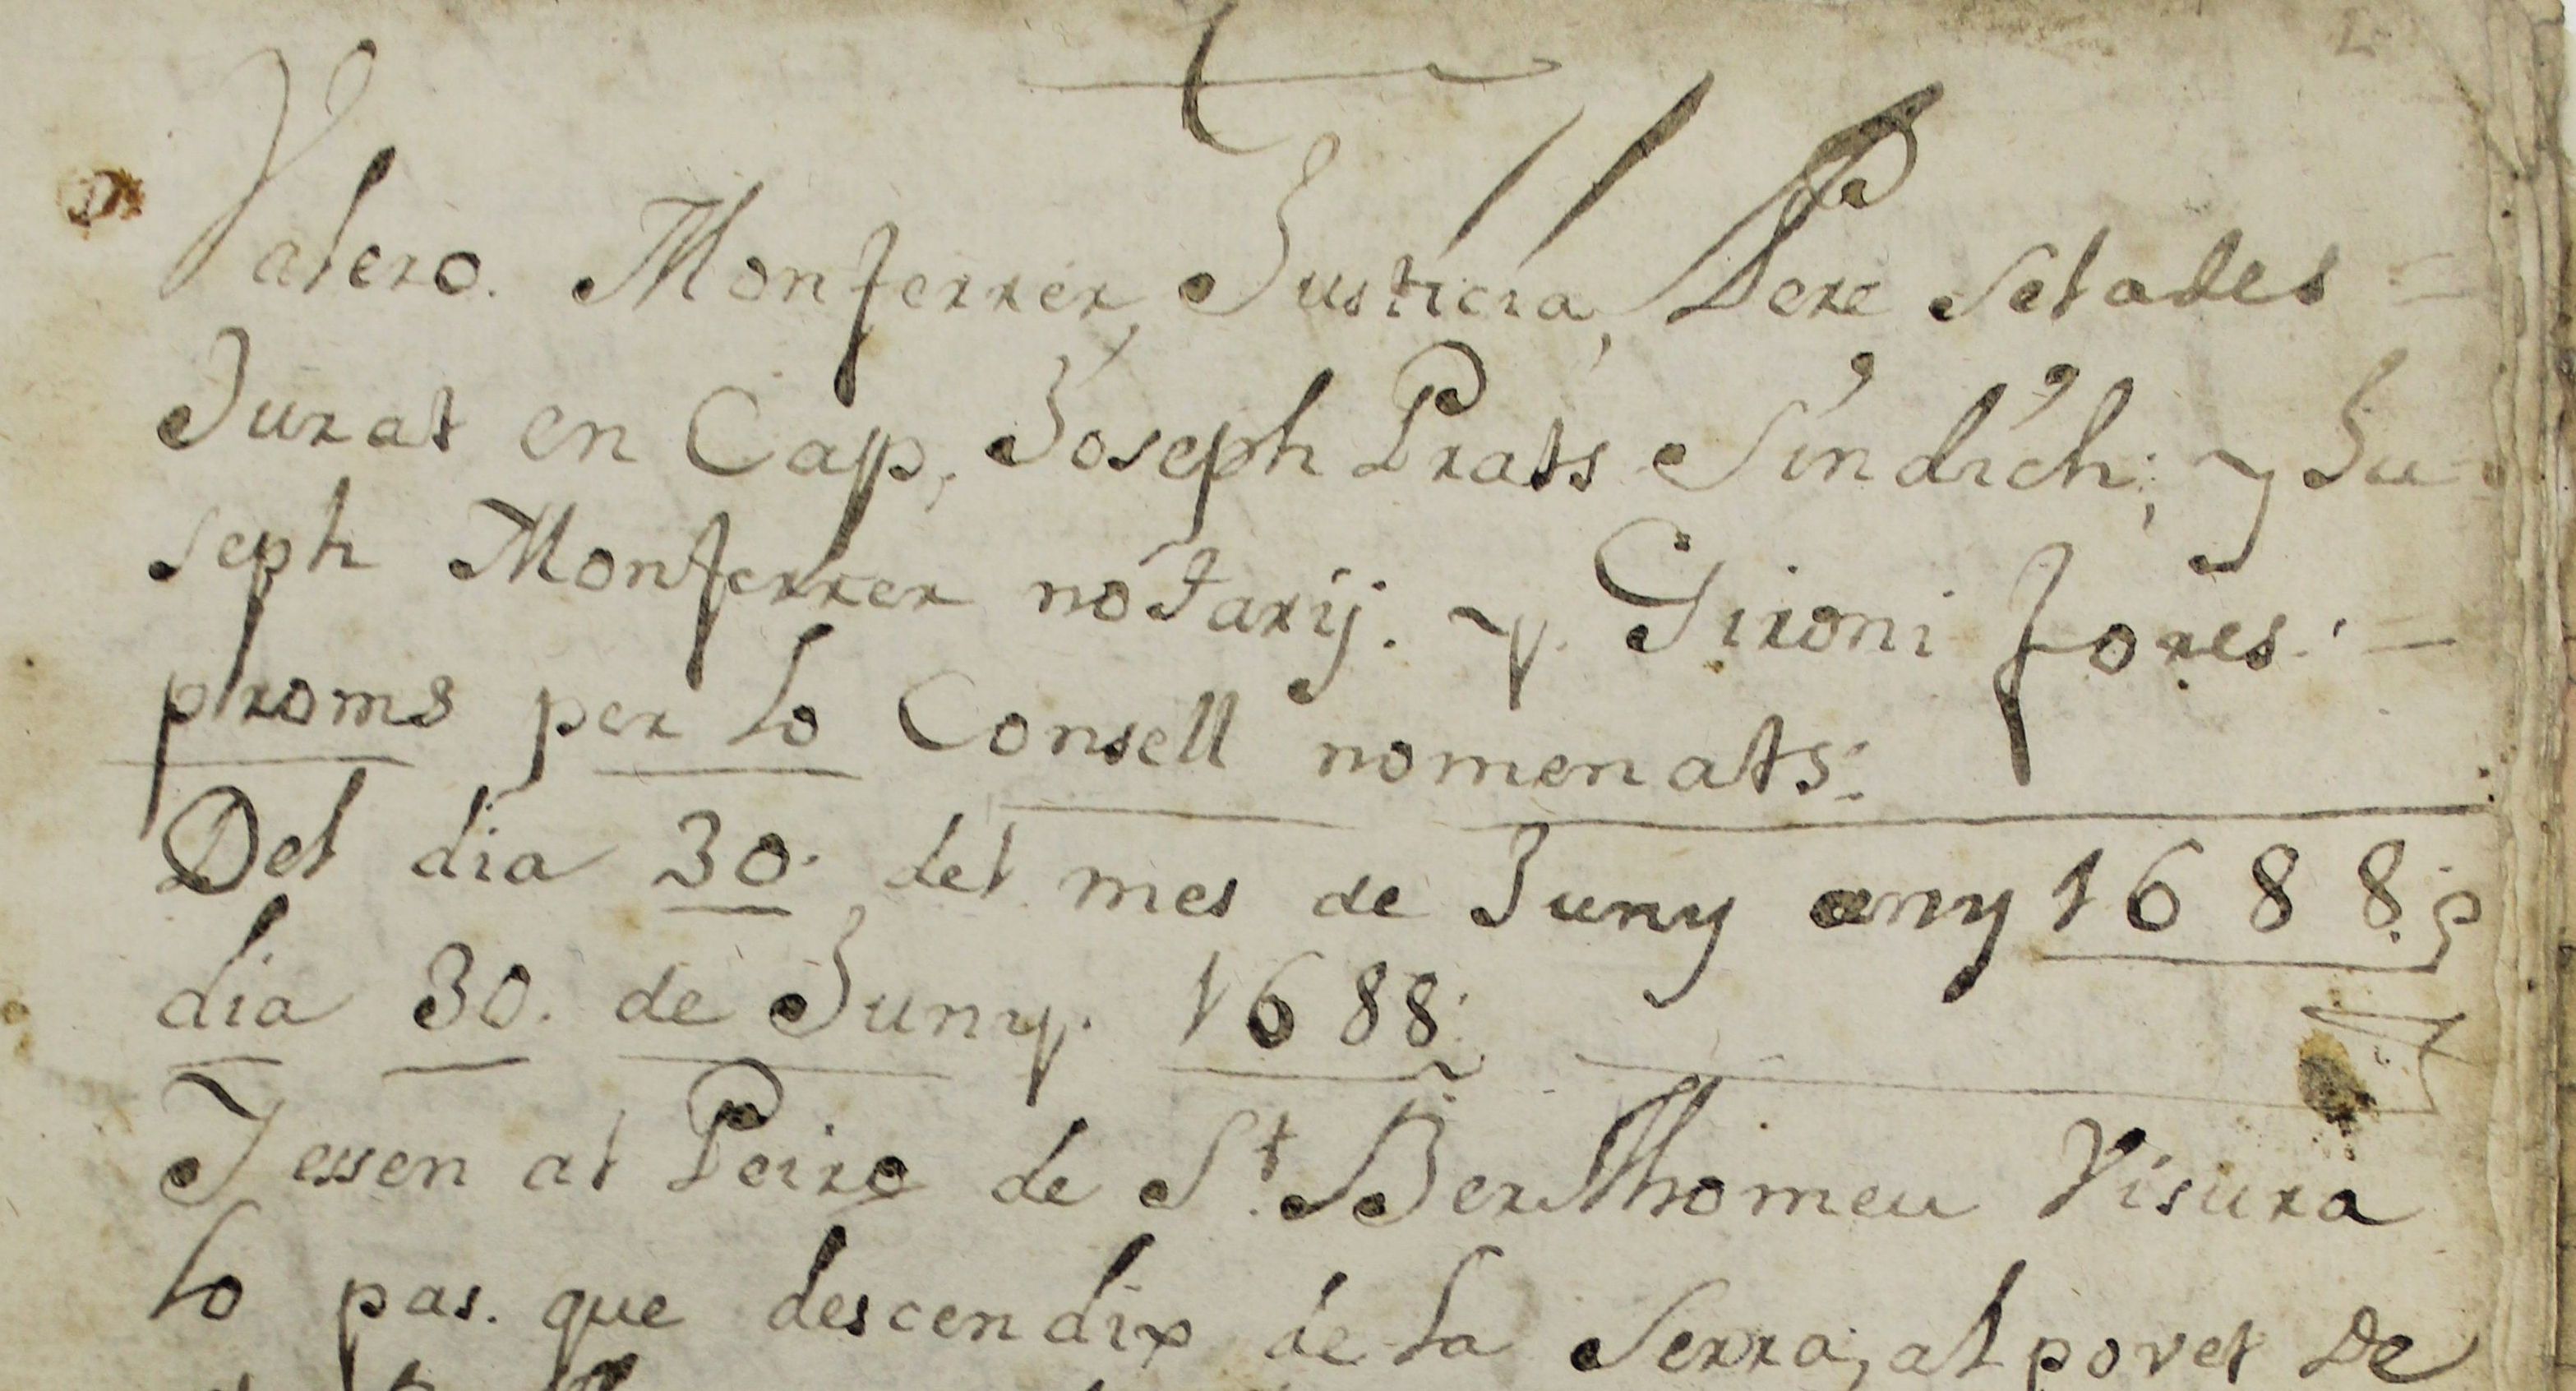 Valero. Monferrer, Justicia, Pere Selades =
Jurat en Cap, Joseph Prats Sindich; y Ju=
seph Monferrer notarij. y. Gironi fores. =
proms per lo Consell nomenats:
Del dia 30. del mes de Juny any 1688.
dia 30. de Juny. 1688.
Y essen al Peiro de St. Berthomeu Visura
lo pas. que descendix de la Serra, al povet de